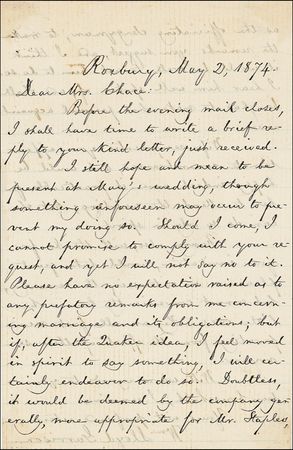 Roxbury, May 2, 1874.
Dear Mrs. Chace:
Before the evening mail closes,
I shall have time to write a brief re-
ply to your kind letter, just received.
I still hope and mean to be
present at Mary's wedding, though
something unforeseen may occur to pre-
vent my doing so. Should I come, I
cannot promise to comply with your re-
quest, and yet I will not say no to it.
Please have no expectation raised as to
any prefatory remarks from me concern-
ing marriage and its obligations; but
if, after the Quaker idea, I feel moved
in spirit to say something, I will cer-
tainly endeavor to do so. Doubtless,
it would be deemed by the company gen-
erally, more appropriate for Mr. Staples,